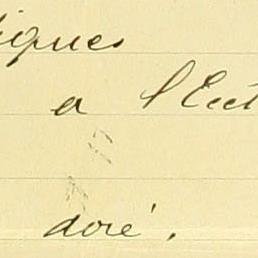 iques
a l'Ect
doré.